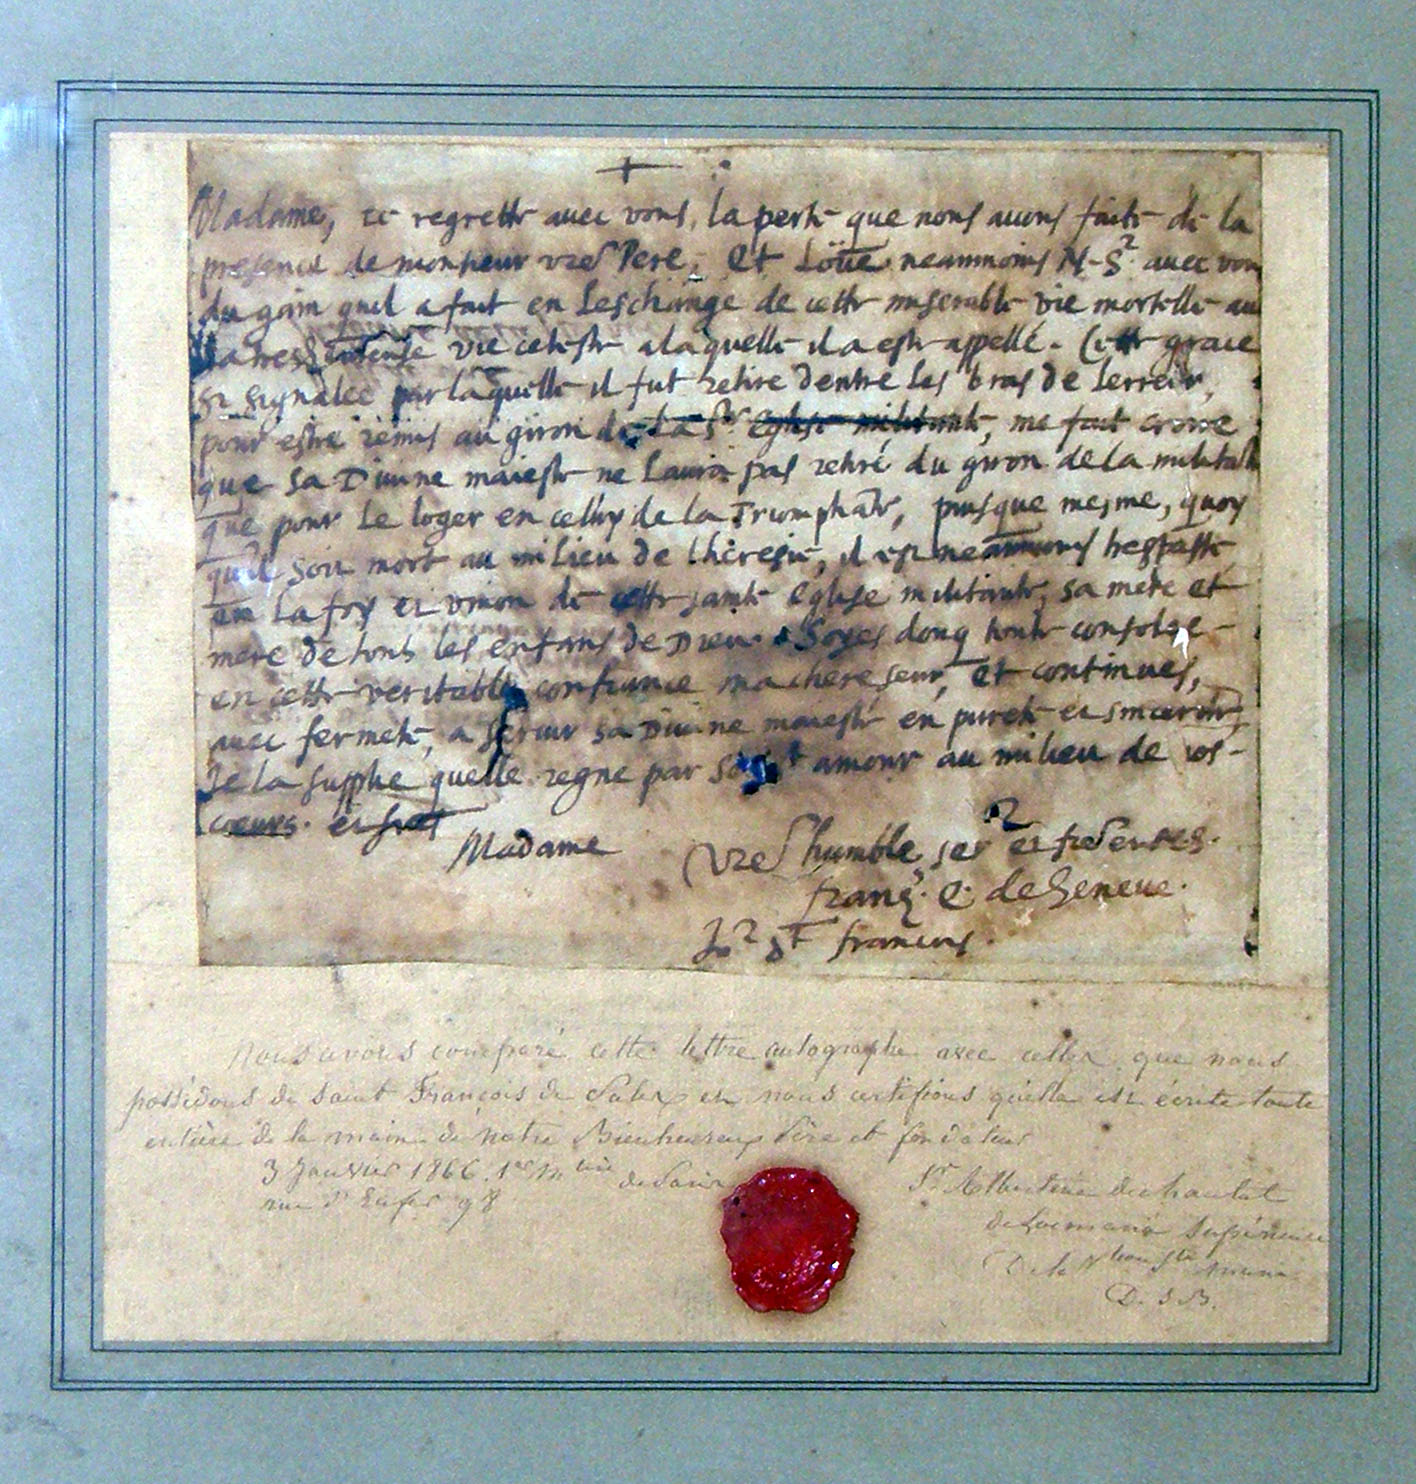 Madame, ie regrette auec vous, la perte que nous auons faite de la
presence de monsieur vre Pere, Et Loüe neanmoins N-Sr auec vous
du gain quil a fait en Leschange de cette miserable vie mortelle au
la tres vie celeste a laquelle il a esté appellé. Cette grace
si signalee par laquelle il fut retiré dentre les bras de Lerreur,
pour estre remis au giron de La Ste Eglise militante, me fait croire
que sa Diuine maiesté ne Laura pas retiré du giron de la militante
que pour Le loger en celluy de la Triomphãte, puisque mesme, quoy
quil soit mort au milieu de Lheresie, il est neanmoins trespassé
en La foy et vnion de cette sainte Eglise militante, sa mere et
mere de tous les enfans de Dieu. Soyes donq toute consolee
en cette veritable confiance ma chere seur, et continues,
auec fermeté, a seruir sa Diuine maiesté en pureté et sincerité,
Je la supplie quelle regne par amour au milieu de vos-
cœurs. et suis
Madame
Vre humble, ser et
franç. e. de Geneue.
St francois.
Nous avons comparé cette lettre autographe avec celles que nous
possédons de Saint François de Sales et nous certifions qu'elle est écrite toute
entière de la main de notre Bienheureux Père et fondateur
3 Janvier 1866. 1er Mtère de Paris
rue d'Enfer 98
Sr
Supérieure
De la Von Ste Marie
D. S. B.